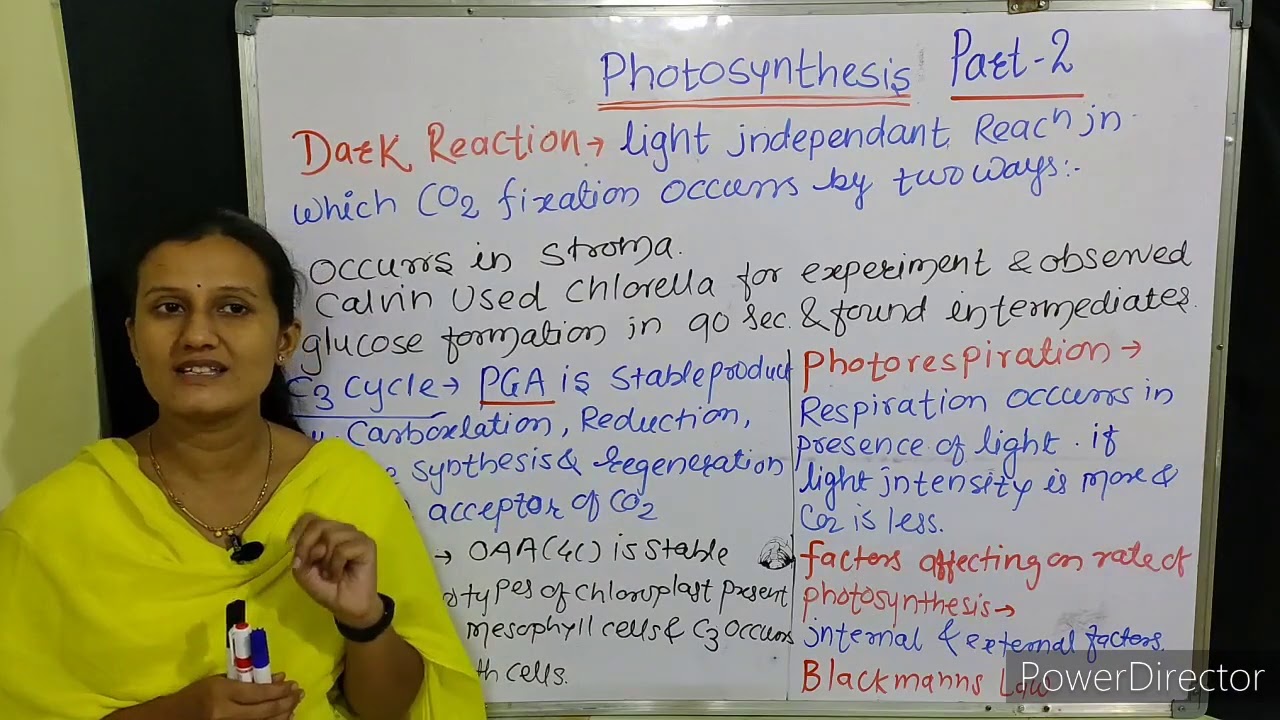 Photosynthesis Part-2
Dark Reaction → light jndependant Reacn jn
which CO2 fixation occurrs by two ways:-
occurrs in stroma.
Calvin Used Chlorella for experiment & observed
glucose formation in 90 sec. & found intermediates.
C3 Cycle → PGA is Stable product
Carboxelation, Reduction,
synthesis & regeneration
acceptor of CO2
→ OAA(4C) is stable
types of chloroplast present
mesophyll cells & C3 occurrs
cells.
Photorespiration →
Respiration occurrs in
presence of light. if
light jntensity is more &
CO2 is less.
factors affecting on rate of
photosynthesis →
jnternal & external factors.
Blackmanns Law
PowerDirector